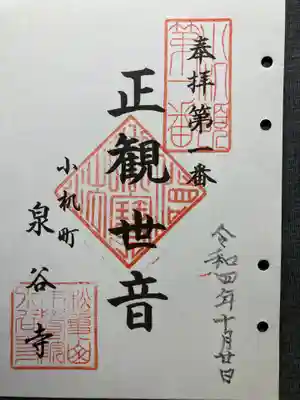 奉拝第一番
正観世音
小机町
泉谷寺
令和四年十月廿日